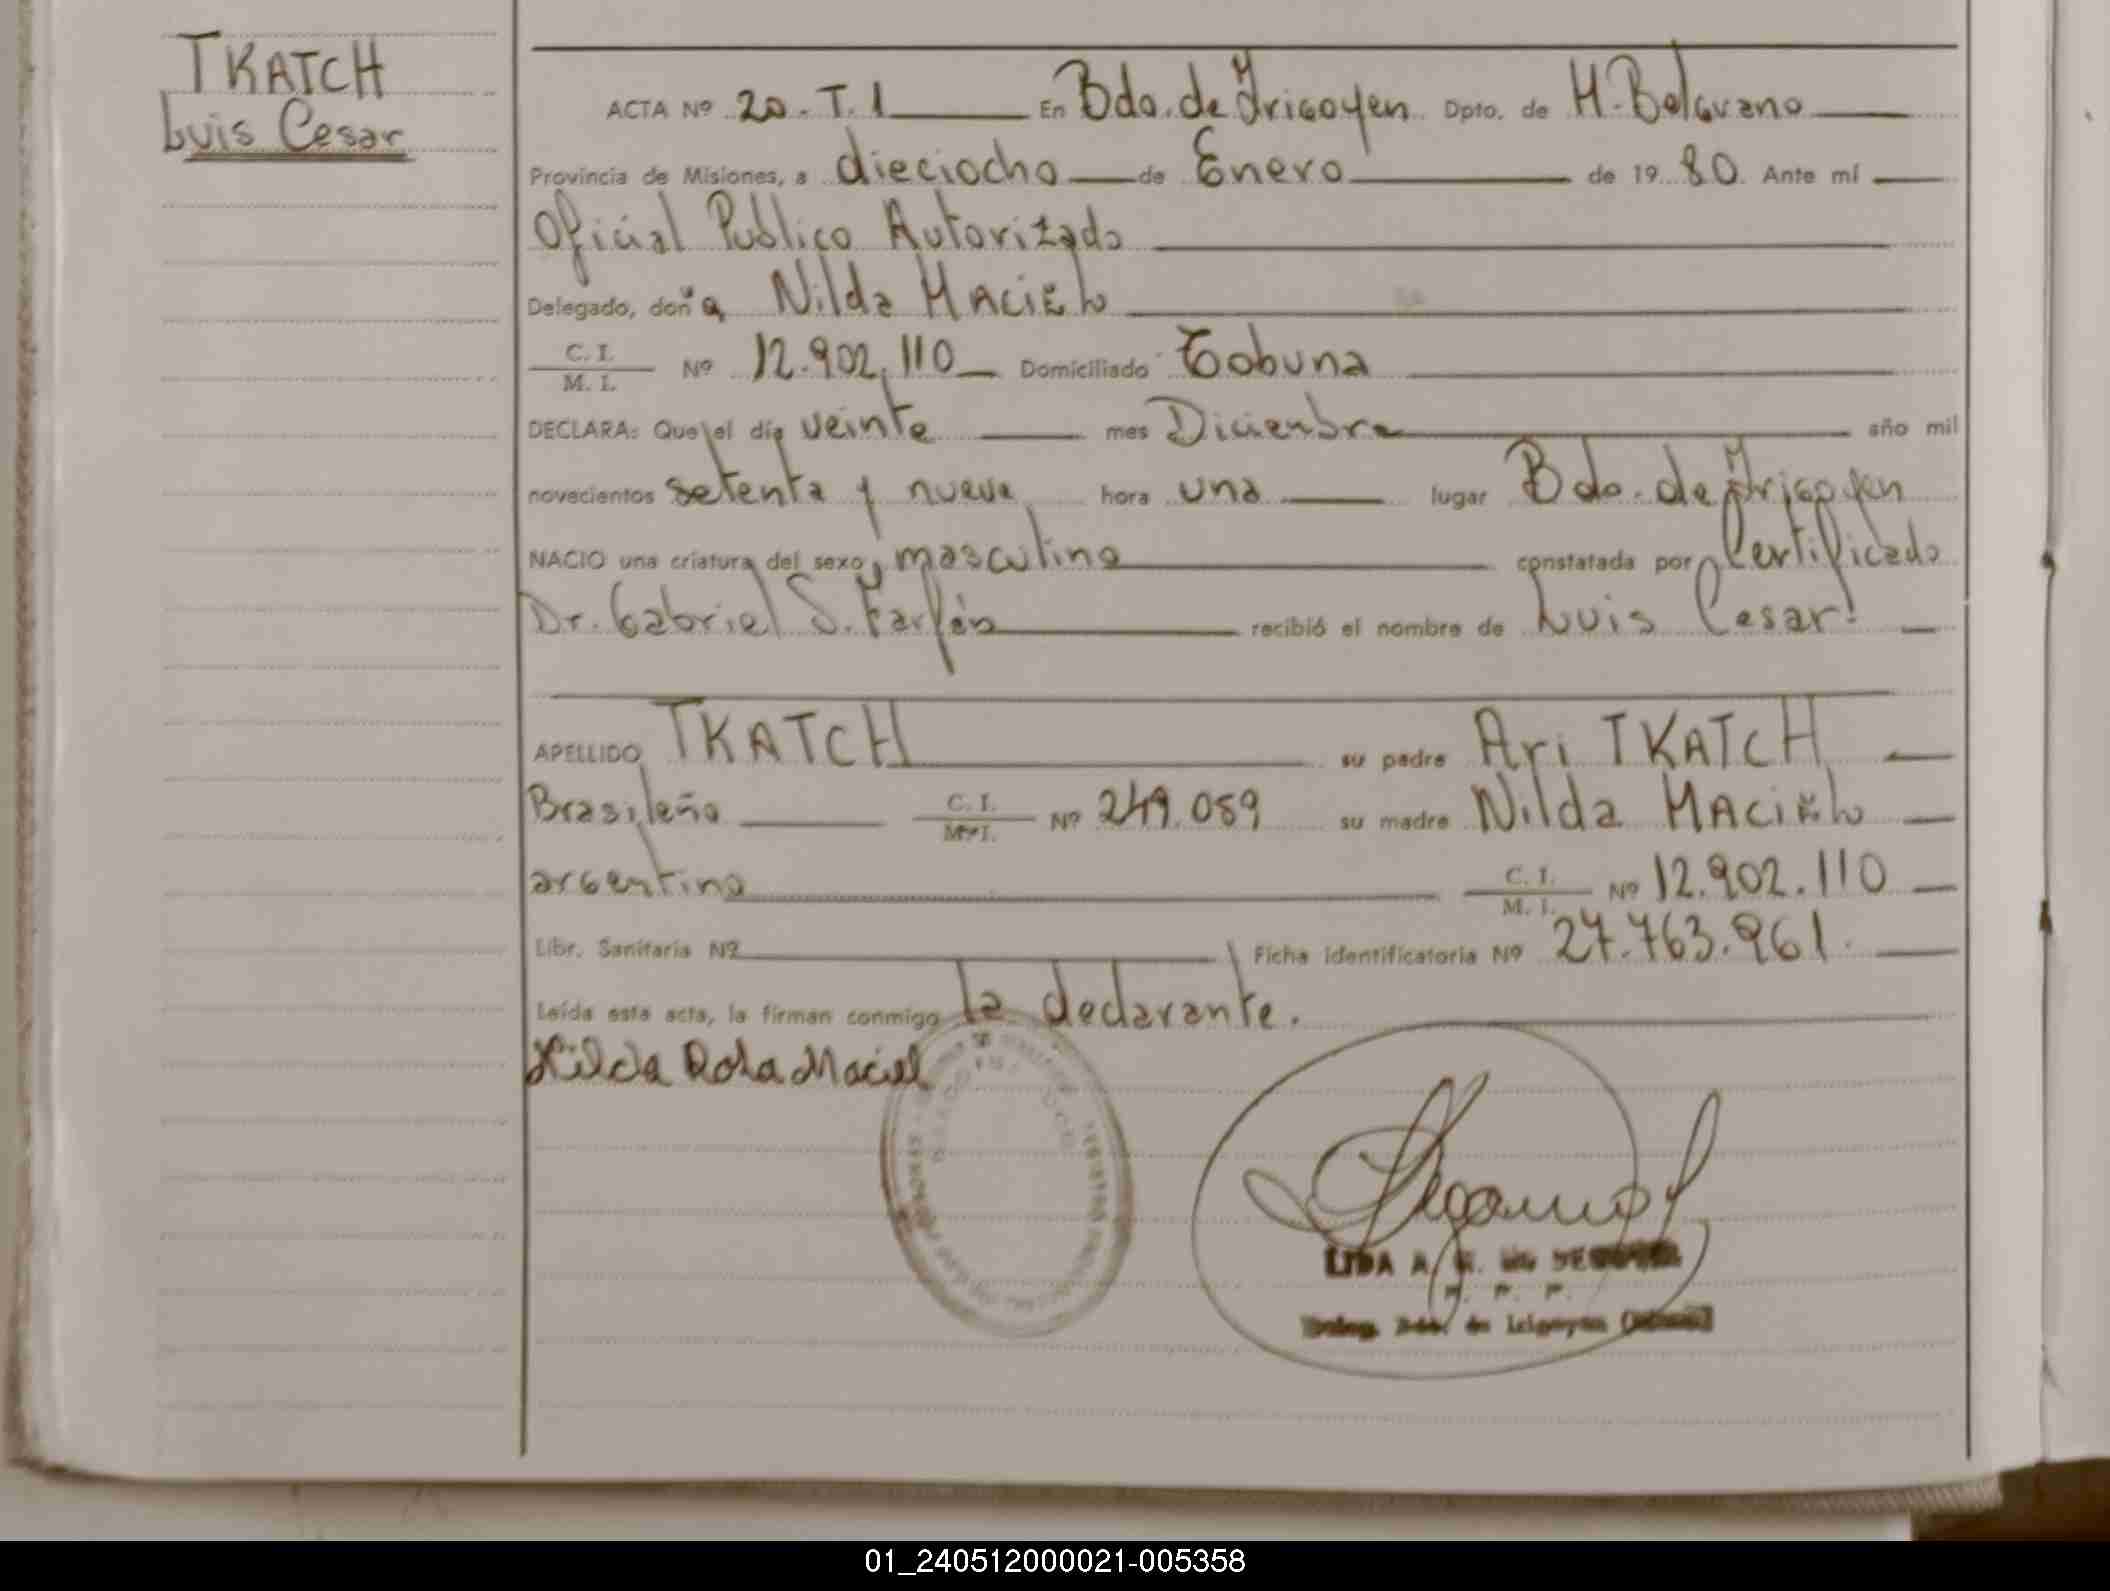 TKATCH
Luis Cesar
ACTA Nº 20. T. 1 En Bdo. de Irigoyen Dpto. de M. Belgrano
Provincia de Misiones, a dieciocho de Enero de 19 80. Ante mí
Oficial Publico Autorizado
Delegado, doña Nilda MACIEL
C. I. / M. I. Nº 12.902.110 Domiciliado Tobuna
DECLARA: Que el día veinte mes Diciembre año mil
novecientos setenta y nueve hora una lugar Bdo. de Irigoyen
NACIO una criatura del sexo masculino constatada por Certificado
Dr. Gabriel S. Farfán recibió el nombre de Luis Cesar
APELLIDO TKATCH su padre Ari TKATCH
Brasileño C. I. / M. I. Nº 249.059 su madre Nilda MACIEL
argentina C. I. / M. I. Nº 12.902.110
Libr. Sanitaria Nº Ficha identificatoria Nº 27.763.961.
Leída esta acta, la firman conmigo la declarante.
Nilda Rosa Maciel
LIDA A.
Deleg. Bdo. de Irigoyen
01_240512000021-005358